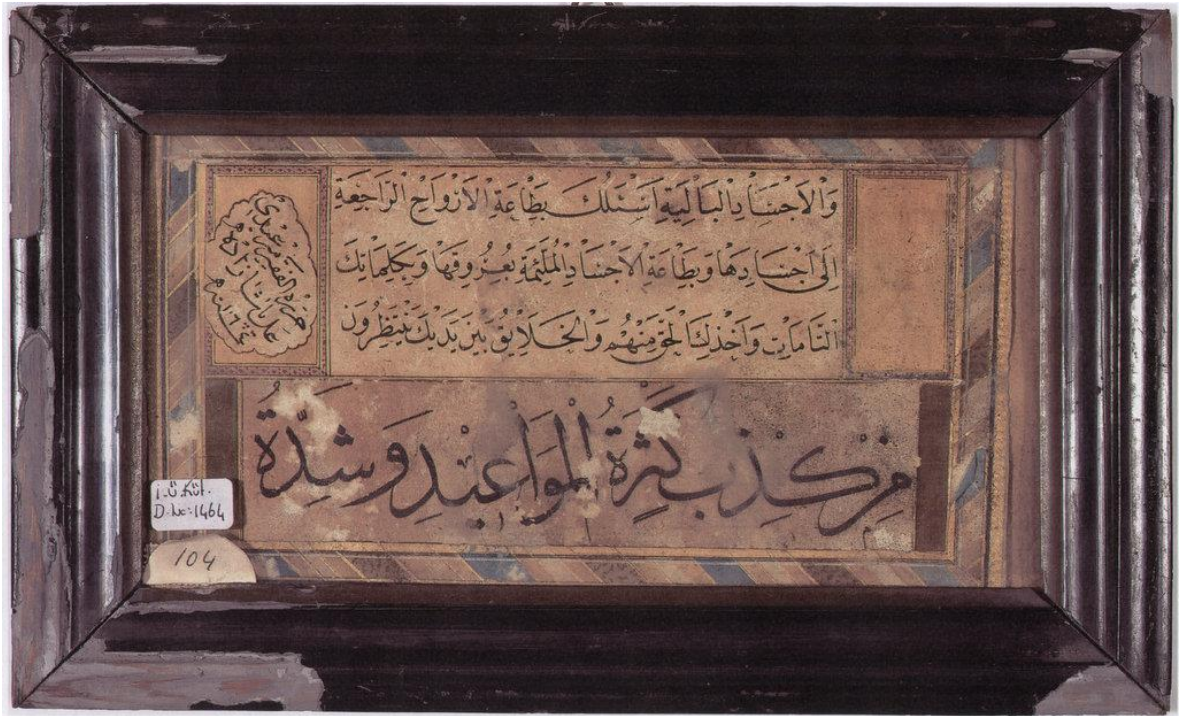 وَالْاَجْسَادِ الْبَالِيَةِ اَسْئَلُكَ بِطَاعَةِ الْاَرْوَاحِ الرَّاجِعَةِ
اِلٰى اَجْسَادِهَا وَبِطَاعَةِ الْاَجْسَادِ الْمُلْتَئِمَةِ بِعُرُوقِهَا وَبِكَلِمَاتِكَ
التَّامَّاتِ وَاَخْذِكَ الْحَقَّ مِنْهُمْ وَالْخَلَايِقُ بَيْنَ يَدَيْكَ يَنْتَظِرُونَ
حرره الفقير
زاده
مِنْ كَذِبٍ كَثْرَةُ الْمَوَاعِيْدِ وَشِدَّةُ
İ.Ü.Küt.
D.No:1464
104